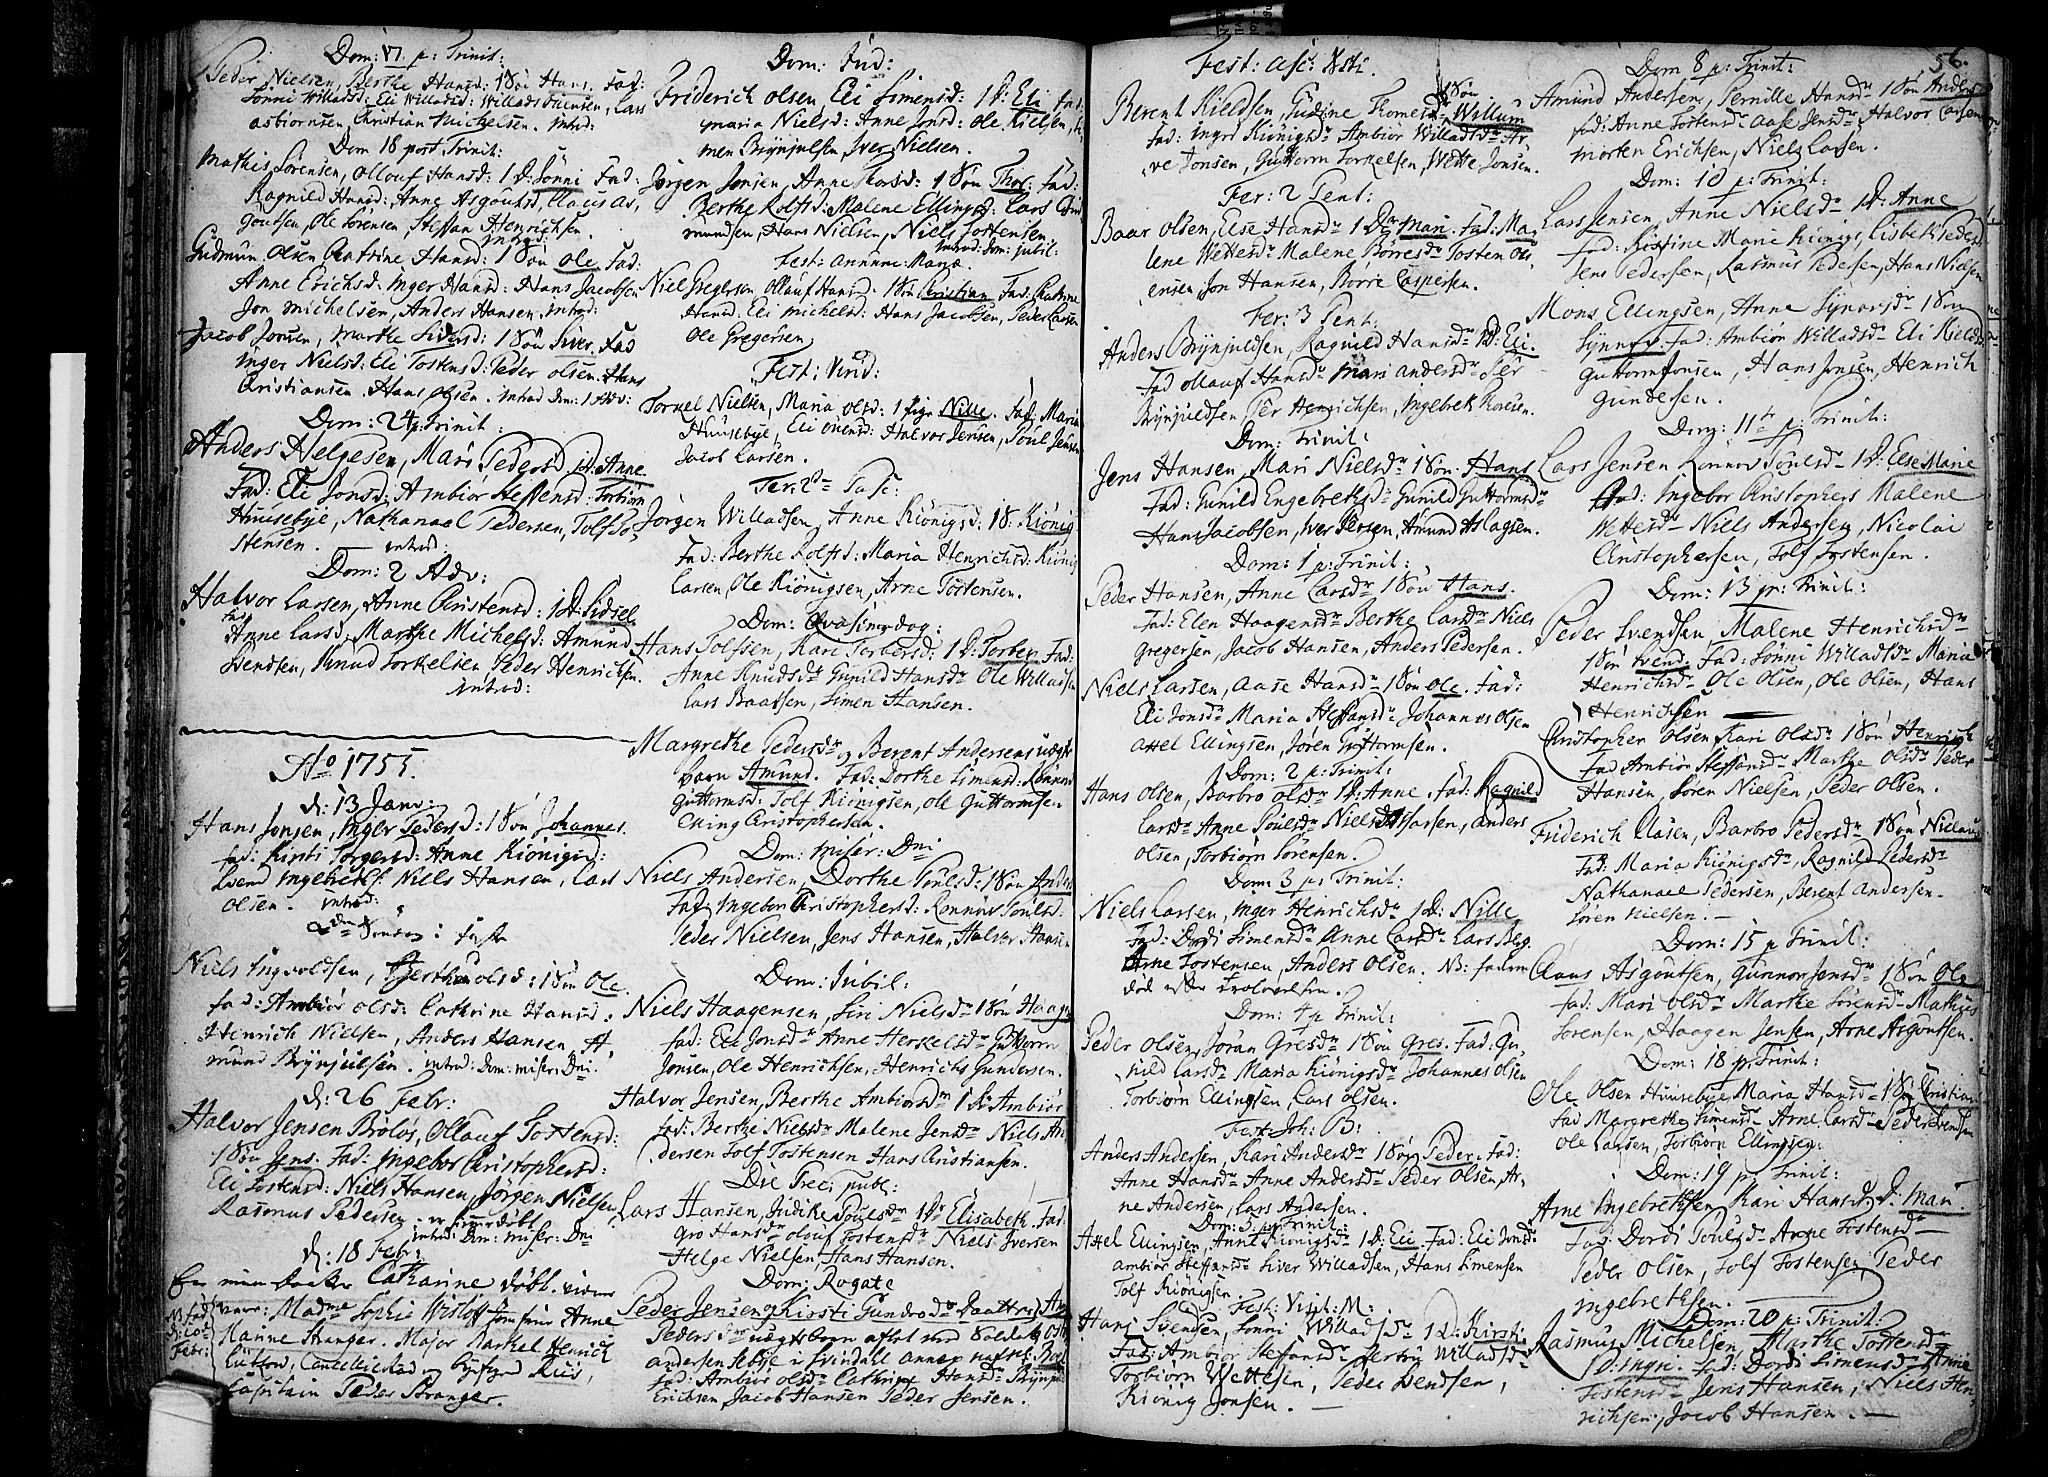 Dom: 17 p: Trinit:
Peder Nielsen, Berthe Hansd: 1 Søn Hans. Fad:
Sønni Willadsd: Eli Willadsd: Willads Lars
Asbiørnsen, Christian Michelsen. introd:
Dom 18 post Trinit:
Mathis Sørensen, Ollouf Hansd: 1 D: Sønni Fad:
Ragnild Hansd: Anne Asgoutsd, Claus As,
goutsen, Ole Sørensen, Steffan Henrichsen.
introd:
Gudmun Olsen Catrine Hansd: 1 Søn Ole, Fad:
Anne Erichsd: Inger Hansd: Hans Jacobsen
Jon Michelsen, Anders Hansen. introd:
Jacob Jonsen, Marthe Siversd: 1 Søn Siver. Fad
Inger Nielsd: Eli Tostensd: Peder Olsen. Hans
Christiansen. Hans Olsen. introd Dom: 1 Adv:
Dom: 24 p. Trinit:
Anders Helgesen, Mari Pedersd 1 D: Anne
Fad: Eli Jonsd: Ambiør Steffensd: Torbiørn
Huusebye, Nathanael Pedersen, Tolf To,
stensen. introd:
Dom: 2 Adv:
Halvor Larsen, Anne Christensd: 1 D: Sidsel
Fad Anne Larsd, Marthe Michelsd: Amund
Svendsen, Knud Torkelsen Peder Henrichsen.
introd:
No 1755.
d: 13 Janv:
Hans Jonsen, Inger Pedersd: 1 Søn Johannes.
Fad: Kirsti Torgersd: Anne Kiønigsd:
Svend Ingebrets: Niels Hansen, Lars
Olsen. introd:
2den Søndag i Faste
Niels Ingvoldsen, Berthe Olsd: 1 Søn Ole.
Fad: Ambiør Olsd: Cathrine Hansd:
Henrich Nielsen, Anders Hansen A,
mund Brynjulsen. introd: Dom: Miser: Dni.
d: 26 Febr:
Halvor Jensen Ollouf Tostensd:
1 Søn Jens. Fad: Ingebor Christophersd:
Eli Tostensd: Niels Hansen, Jørgen Nielsen,
Rasmus Pedersen. er hiemedøbt
introd: Dom: Miser: Dni
d: 18 Febr:
Er min Daatter Catharine døbt.
vare: Madme Sophie Wistoff Anne
Hanne Stranger. Major Barthel Henrich
Lüttow, Cancellieraad og Byefogd Riis,
Capitain Peder Stranger.
Dom: Ind:
Friderich Olsen Eli Simensd: 1 D: Eli Fad:
Maria Nielsd: Anne Jonsd: Ole Nielsen,
men Brynjulsen, Iver Nielsen.
Jørgen Jonsen, Anne Thorsd: 1 Søn Thor: Fad:
Berthe Rolfsd: Malene Ellingsd: Lars
mundsen, Hans Nielsen, Niels Tostensen
introd: Dom: Jubil:
Fest: Annunc: Mariæ.
Niel Gregersen Ollauf Hansd: 1 Søn Christian Fad: Cathrine
Hansd: Eli Michelsd: Hans Jacobsen, Peder Larsen
Ole Gregersen
Fest: Virid:
Torkel Nielsen, Maria Olsd: 1 Pige Nille. Fad. Maria
Huusebye, Eli Olensd: Halvor Jensen, Poul Jensen
Jacob Larsen.
Fer: 2da Pasc:
Jørgen Willadsen, Anne Kiønigsd: 1 S. Kiønig
Fad: Berthe Rolfsd: Maria Henrichsd: Kiønig
Larsen, Ole Kiønigsen, Arne Tostensen.
Dom: Qvasimodog:
Hans Tolfsen, Kari Torbersd: 1 D: Torber Fad:
Anne Knudsdr Gunild Hansdr Ole Willadsen
Lars Baarsen, Simen Hansen.
Margrethe Pedersdr og Berent Andersens uægte
Barn Amund. Fad: Dorthe Simensd: Rønnou
Guttormsd: Tolf Kiønigsen, Ole Guttormsen
Elling Christophersen.
Dom: Miser: Dni
Niels Andersen, Dorthe Poulsd: 1 Søn Anders
Fad: Ingebor Christophersd: Rønnou Poulsd.
Peder Nielsen, Jens Hansen, Halvor Hansen
Dom: Jubil:
Niels Haagensen, Siri Nielsdr 1 Søn Haagen
Fad: Eli Jonsdr Anne Herkelsdr Guttorm
Jonsen, Ole Henrichsen, Henrichs Gundersen.
Halvor Jensen, Berthe Ambiørsdr 1 D: Ambiør
Fad: Berthe Nielsdr Malene Jensdr Niels An,
dersen Tolf Tostensen Hans Christiansen.
Die Prec: publ:
Lars Hansen, Judithe Poulsdr 1 Dr Elisabeth. Fad:
Gro Hansdr Olouf Tostensdr Niels Iversen
Helge Nielsen, Hans Hansen.
Dom: Rogate
Peder Jensen og Kirsti Gundersdr Daatter
Pedersdr uægte barn aflet ved Soldat
Andersen Sebye i Svindahl Annex
Fad: Ambiør Olsdr Cathrine Hansdr
Erichsen, Jacob Hansen Peder Jensen.
Fest: Asc: Xsti.
Berent Kieldsen, Gudine Tomesdr 1 Søn Willum
Fad: Ingri Kiønigsdr Ambiør Willadsdr Ar,
ve Jonsen, Guttorm Torkelsen, Wette Jonsen.
Fer: 2 Pent:
Baar Olsen, Else Hansd 1 Dr Mari. Fad: Ma,
lene Wettesdr Malene Børresdr Tosten Ols,
ensen, Jon Hansen, Børre Caspersen.
Fer: 3 Pent:
Anders Brynjuldsen, Ragnild Hansdr 1 D: Eli.
Fad Ollauf Hansdr Mari Andersdr Per
Brynjuldsen Per Henrichsen, Ingebret Thoresen.
Dom: Trinit:
Jens Hansen, Mari Nielsdr 1 Søn. Hans
Fad: Gunild Engebretsdr Gunild Guttormsdr
Hans Jacobsen, Iver Persen, Amund Aslagsen.
Dom: 1 p: Trinit:
Peder Hansen, Anne Larsdr 1 Søn Hans.
Fad: Elen Haagensdr Berthe Larsdr Niels
Gregersen, Jacob Hansen, Anders Pedersen.
Niels Larsen, Aase Hansdr 1 Søn Ole. Fad:
Eli Jonsdr Maria Steffansdr Johannes Olsen
Axel Ellingsen, Søren Guttormsen.
Dom: 2 p: Trinit:
Hans Olsen, Barbro Olsdr 1 D: Anne. Fad: Ragnild
Larsdr Anne Poulsdr Niels Larsen, Anders
Olsen, Torbiørn Sørensen.
Dom: 3 p: Trinit:
Niels Larsen, Inger Henrichsdr 1 D: Nille
Fad: Dordi Simensdr Anne Larsdr Lars Berg
Arne Tostensen, Anders Olsen. NB: Faderen
død efter trolovelsen.
Dom: 4 p Trinit:
Peder Olsen, Joran Gresdr 1 Søn Gres. Fad: Gu,
nild Larsdr Maria Kiønigsdr Johannes Olsen
Torbiørn Ellingsen, Lars Olsen.
Fest: Joh: B:
Anders Andersen, Kari Andersdr 1 Søn Peder. Fad:
Anne Hansdr Anne Andersdr Peder Olsen, Ar,
ne Andersen, Lars Andersen.
Dom: 5 p: Trinit:
Axel Ellingsen, Anne Kiønigsdr 1 D: Eli. Fad: Eli Jonsd:
Ambiør Steffansdr Siver Willadsen, Hans Simensen
Tolf Kiønigsen.
Fest: Visit: M:
Hans Svendsen, Sønni Willadsdr 1 D: Kirsti.
Fad: Ambiør Stefansdr Willadsdr
Torbiørn Wettesen, Peder Svendsen,
Kiønig Jonsen.
56.
Dom 8 p: Trinit:
Amund Andersen, Pernille Hansdr 1 Søn Anders
Fad: Anne Tostensdr Aase Jensdr Halvor Larsen
Morten Erichsen, Niels Larsen.
Dom: 10 p: Trinit:
Lars Jensen, Anne Nielsdr 1 D: Anne
Fad: Kirstine Marie Kiønigs, Lisbeth Pedersd
Jens Pedersen, Rasmus Pedersen, Hans Nielsen
Mons Ellingsen, Anne Synørsdr 1 Søn
Synnør. Fad: Ambiør Willadsdr Eli Kieldsd
Guttorm Jonsen, Hans Jonsen, Henrich
Gundersen.
Dom: 11te p: Trinit:
Lars Jensen Rønnov Poulsdr 1 D: Else Marie
Fad: Ingebor Christophers Malene
Wettesdr Niels Andersen, Nicolai
Christophersen, Tolf Tostensen.
Dom: 13 p: Trinit:
Peder Svendsen, Malene Henrichsdr
1 Søn Svend. Fad: Sønni Willadsdr Maria
Henrichsdr Ole Olsen, Ole Olsen, Hans
Henrichsen
Christopher Olsen Kari Olsdr 1 Søn Henrich
Fad Ambiør Steffansdr Marthe Olsdr Peder
Hansen, Søren Nielsen, Peder Olsen.
Friderich Clasen, Barbro Pedersdr 1 Søn Nielaus
Fad: Maria Kiønigsdr, Ragnild Pedersdr
Nathanael Pedersen, Berent Andersen.
Søren Nielsen.
Dom: 15 p Trinit:
Claus Asgoutsen, Gunnor Jonsdr 1 Søn Ole
Fad: Mari Olsdr Marthe Sørensdr Mathias
Sørensen, Haagen Jensen, Arne Asgoutsen.
Dom: 18 p. Trinit:
Ole Olsen Huusebye Maria Hansdr 1 Søn Christian
Fad Margrethe Simensdr Arne Larsdr Peder Svendsen
Ole Larsen, Torbiørn Ellingsen.
Dom: 19 p: Trinit:
Arne Ingebretsen, Kari Hansd, 1 D: Mari.
Fad: Dordi Poulsdr Anne Tostensdr
Peder Olsen, Tolf Tostensen, Peder
Ingebretsen.
Dom: 20 p: Trinit:
Rasmus Michelsen, Marthe Tostensdr
1 D: Ingri. Fad: Dordi Simensdr Anne
Tostensdr Jens Hansen, Niels Hen,
richsen, Jacob Hansen.